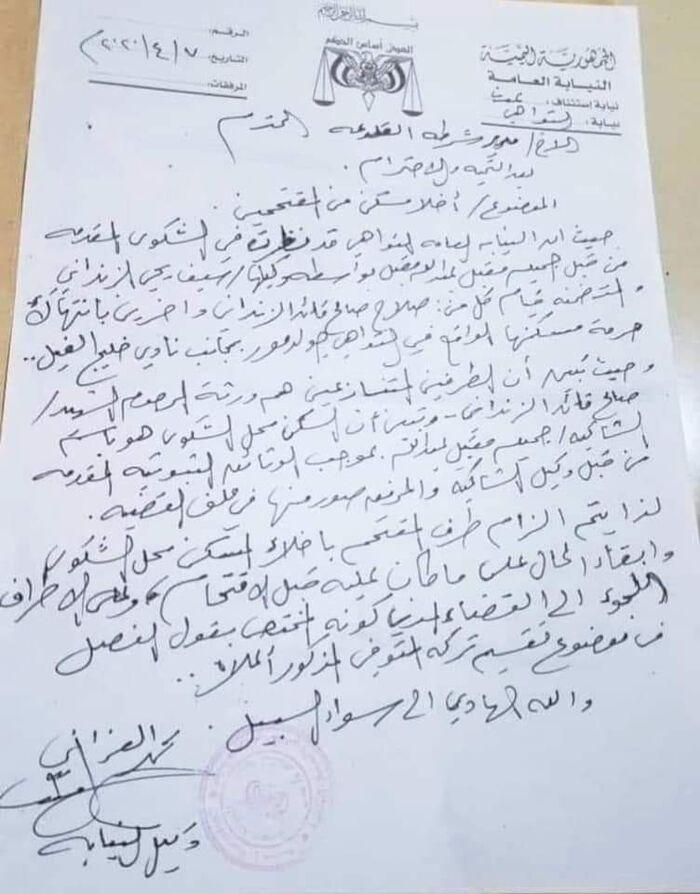 بسم الله الرحمن الرحيم
الجمهورية اليمنية
النيابة العامة
نيابة إستئناف: عدن
نيابة: التواهي
العدل أساس الحكم
الرقم:
التاريخ: ٧/٤/٢٠٢٠
المرفقات:
الاخ/ مدير شرطه القلوعه المحترم
بعد التحيه والاحترام.
الموضوع/ أخلاء مسكن من المقتحمين.
حيث ان النيابه العامه التواهي قد نظرت في الشكوى المقدمه
من قبل جميله مقبل عبدالله مقبل بواسطه وكيلها/ سيف يحي الزنداني
والمتضمنه قيام كل من: صلاح صالح قائد الزنداني واخرين بانتهاك
حرمة مسكنها الواقع في التواهي جولدمور بجانب نادي خليج الفيل..
وحيث تبين أن الطرفين المتنازعين هم ورثة المرحوم الشهيد/
صالح قائد الزنداني - وتبين أن السكن محل الشكوى هو باسم
الشاكيه/ جميله مقبل عبدالله بموجب الوثائق الثبوتيه المقدمه
من قبل وكيل الشاكيه والمرفقه صور منها في ملف القضيه.
لذا يتم الزام طرف المقتحم باخلاء المسكن محل الشكوى
وابقاء الحال على ماكان عليه قبل الاقتحام، وعلى الاطراف
اللجوء الى القضاء المدني كونه المختص بقول الفصل
في موضوع تقسيم تركه المتوفي المذكور أعلاه..
والله الهادي الى سواء السبيل.
وكيل النيابه